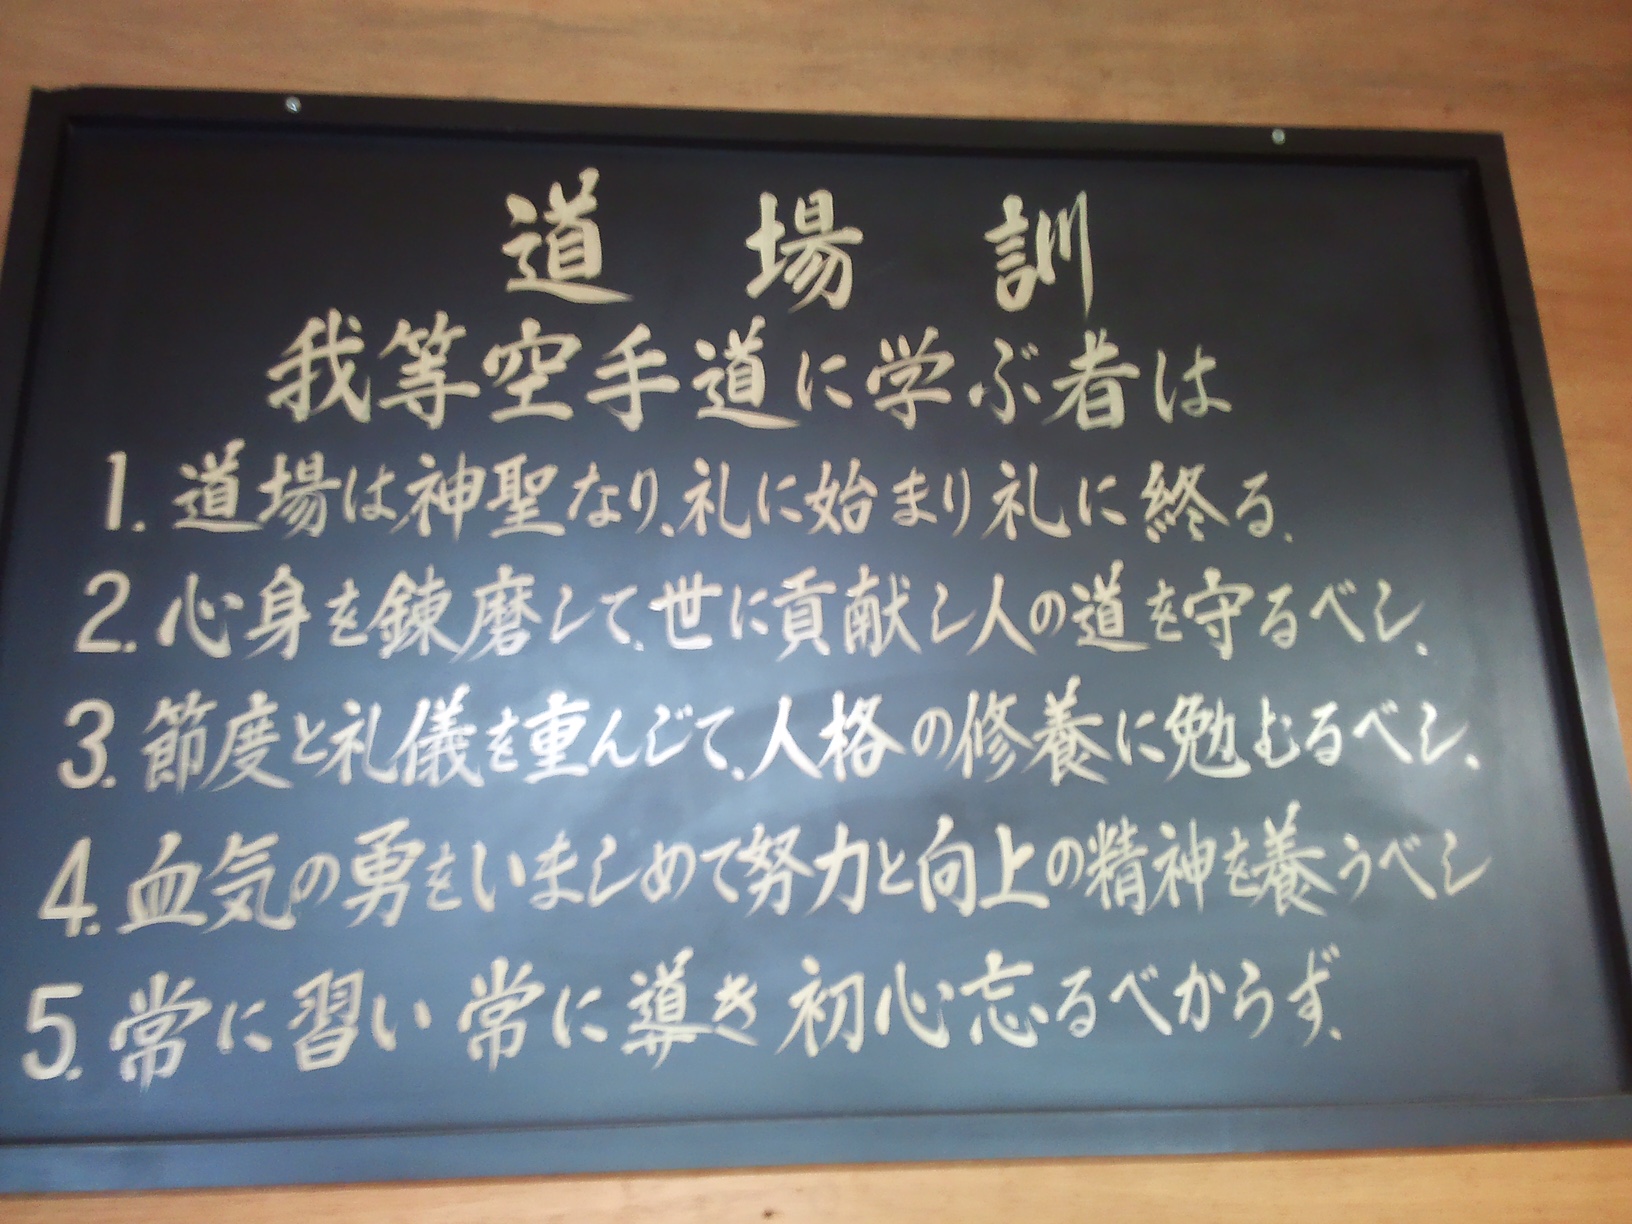 道場訓
我等空手道に学ぶ者は
1. 道場は神聖なり、礼に始まり礼に終る、
2. 心身を錬磨して、世に貢献し人の道を守るべし、
3. 節度と礼儀を重んじて、人格の修養に勉むるべし、
4. 血気の勇をいましめて努力と向上の精神を養うべし
5. 常に習い常に導き初心忘るべからず、